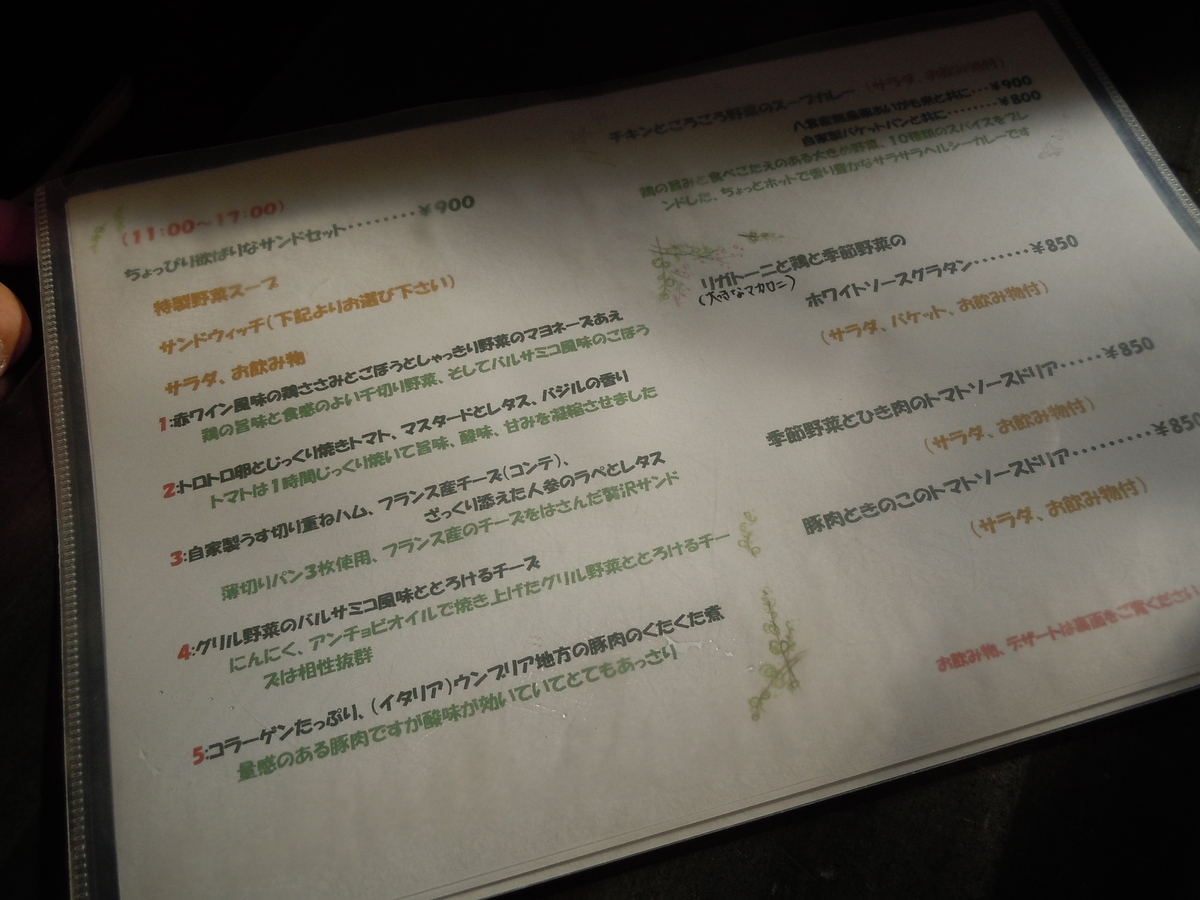 (11:00～17:00)
ちょっぴり欲ばりなサンドセット········¥900
特製野菜スープ
サンドウィッチ(下記よりお選び下さい)
サラダ、お飲み物
1:赤ワイン風味の鶏ささみとごぼうとしゃっきり野菜のマヨネーズあえ
鶏の旨味と食感のよい千切り野菜、そしてバルサミコ風味のごぼう
2:トロトロ卵とじっくり焼きトマト、マスタードとレタス、バジルの香り
トマトは1時間じっくり焼いて旨味、酸味、甘みを凝縮させました
3:自家製うす切り重ねハム、フランス産チーズ(コンテ)、
ざっくり添えた人参のラペとレタス
薄切りパン3枚使用、フランス産のチーズをはさんだ贅沢サンド
4:グリル野菜のバルサミコ風味ととろけるチーズ
にんにく、アンチョビオイルで焼き上げたグリル野菜ととろけるチー
ズは相性抜群
5:コラーゲンたっぷり、(イタリア)ウンブリア地方の豚肉のくたくた煮
量感のある豚肉ですが酸味が効いていてとてもあっさり
チキンところころ野菜のスープカレー (サラダ、お飲み物付)
あいがも米と共に···¥900
自家製バケットパンと共に········¥800
鶏の旨みと食べごたえのある大きめ野菜、10種類のスパイスをブレ
ンドした、ちょっとホットで香り豊かなサラサラヘルシーカレーです
リガトーニと鶏と季節野菜の
(大きなマカロニ)
ホワイトソースグラタン·······¥850
(サラダ、バケット、お飲み物付)
季節野菜とひき肉のトマトソースドリア·····¥850
(サラダ、お飲み物付)
豚肉ときのこのトマトソースドリア·········¥850
(サラダ、お飲み物付)
お飲み物、デザートは裏面をご覧ください